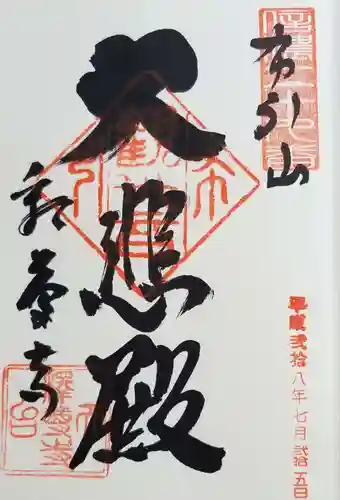 布引山
大悲殿
釈尊寺
平成弐拾八年七月弐拾五日